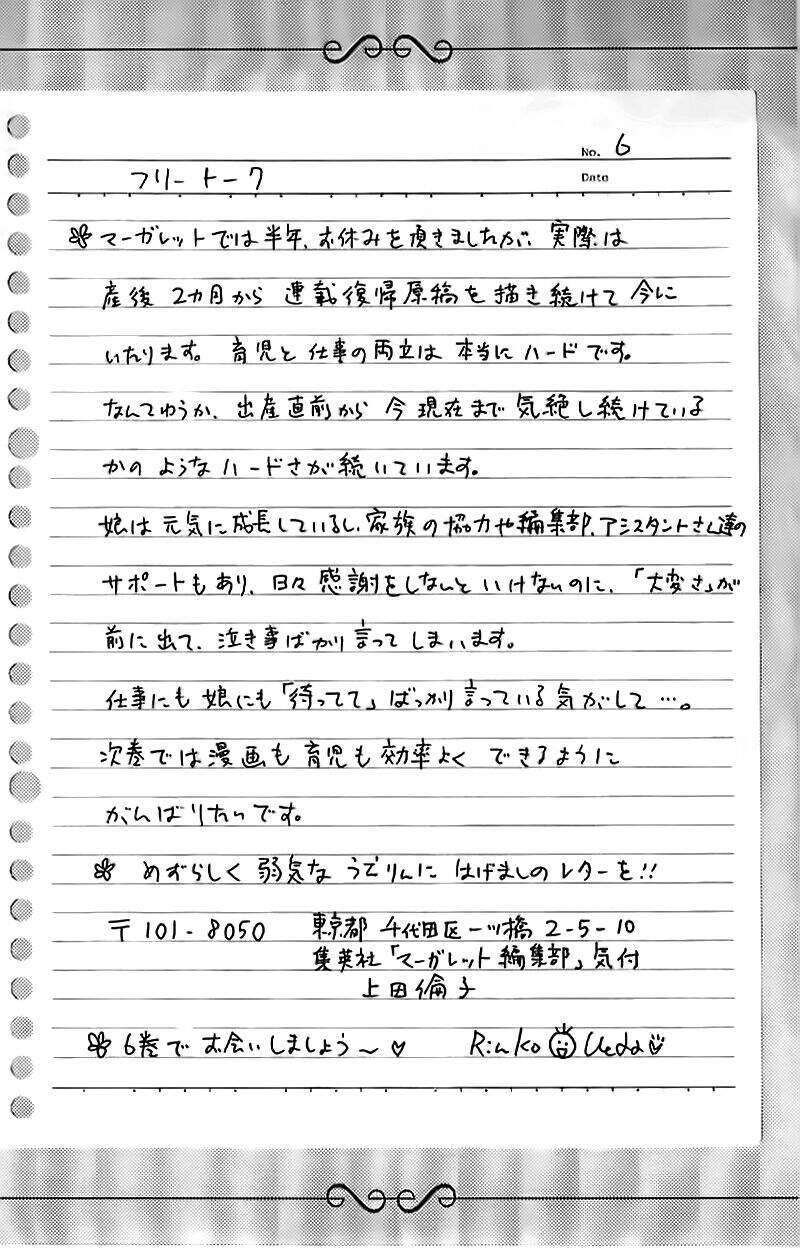 No. 6
フリートーク
Date
マーガレットでは半年、お休みを頂きましたが、実際は
産後 2カ月から 連載復帰原稿を 描き続けて 今に
いたります。 育児と 仕事の両立は 本当に ハードです。
なんてゆうか、出産直前から 今 現在まで 気絶し続けている
かの ような ハードさが 続いています。
娘は 元気に 成長しているし、家族の協力や編集部、アシスタントさん達の
サポートも あり、日々 感謝をしないと いけないのに、「大変さ」が
前に出て、泣き事ばかり言って しまいます。
仕事にも 娘にも「待ってて」ばっかり言っている気がして…。
次巻では漫画も 育児も 効率よく できるように
がんばりたいです。
めずらしく 弱気な うえりんに はげましの レターを!!
〒101-8050 東京都 千代田区一ツ橋 2-5-10
集英社「マーガレット 編集部」気付
上田倫子
6巻で お会いしましょう〜♡ Rinko Ueda